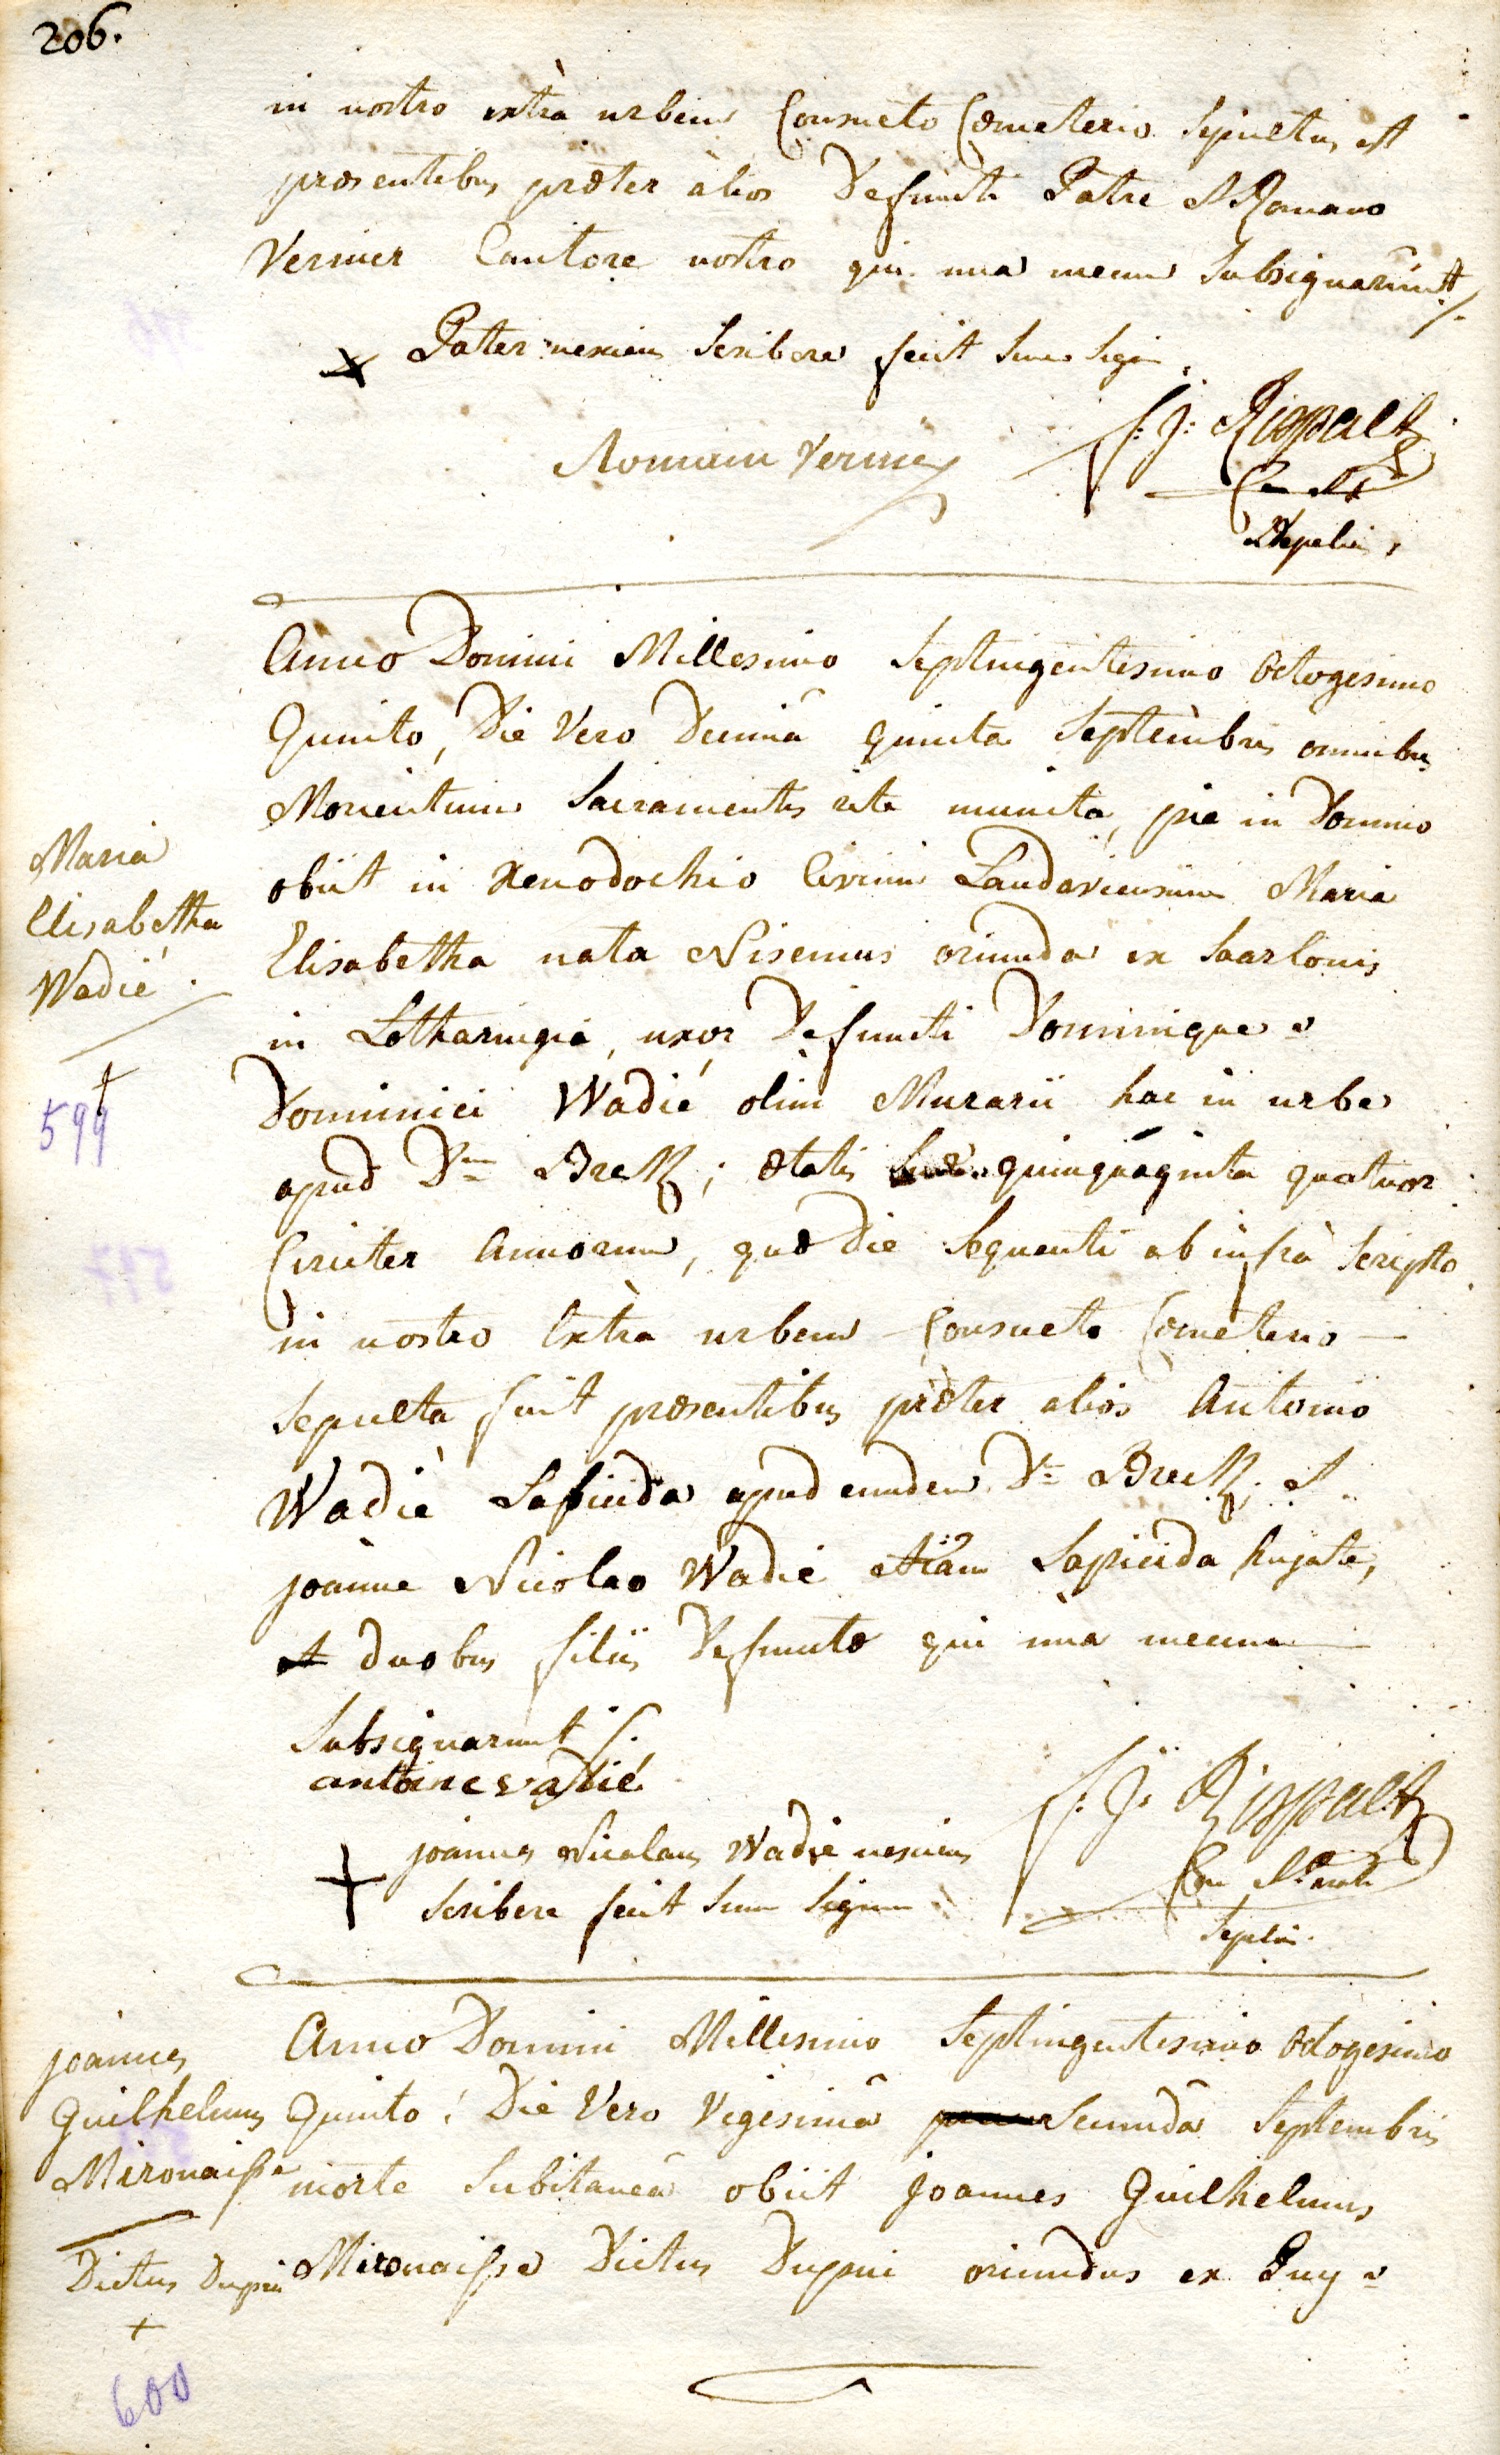 206.
in nostro extrà urbem Consueto Cœmeterio sepultus est
præsentibus præter àlios Defuncti Patre & Romano
Vernier Cantore nostro qui unà mecum subsignarunt /.
Pater nesciens scribere fecit suum sign
Romain Vernier
f: J: Rispalt
Anno Domini Millesimo Septingentesimo Octogesimo
Quinto, Die Vero Decimâ quinta Septembris omnibus
Morientium Sacramentis rite munita, pie in Domino
obiit in Xenodochio Civium Landaviensium Maria
Elisabetha nata Nisemus oriunda ex Saarlouis
in Lotharingia, uxor Defuncti Dominique
Dominici Wadié olim Murarii hac in urbe
apud Dm Breck; ætatis suæ quinquaginta quatuor
Circiter Annorum, quæ Die sequenti ab infrà scripto
in nostro Extrà urbem Consueto Cœmeterio —
sepulta fuit præsentibus præter alios Antonio
Wadiè Lapicida apud eundem D. Breck, &
joanne Nicolao Wadié etiam Lapicida hujate,
et duobus filiis Defunctæ qui unà mecum
Subsignarunt /.
antoine vadié
joannes Nicolaus Wadie nesciens
scribere fecit suum signum
f: J: Rispalt
Maria
Elisabetha
Wadié
599
Anno Domini Millesimo Septingentesimo Octogesimo
Quinto; Die Vero Vigesimâ Secundâ Septembris
morte Subitaneâ obiit joannes Guilhelmus
Mironaisse Dictus Dupui oriundus ex Puy
joannes
Guilhelmus
Mironaisse
Dictus Dupui
600